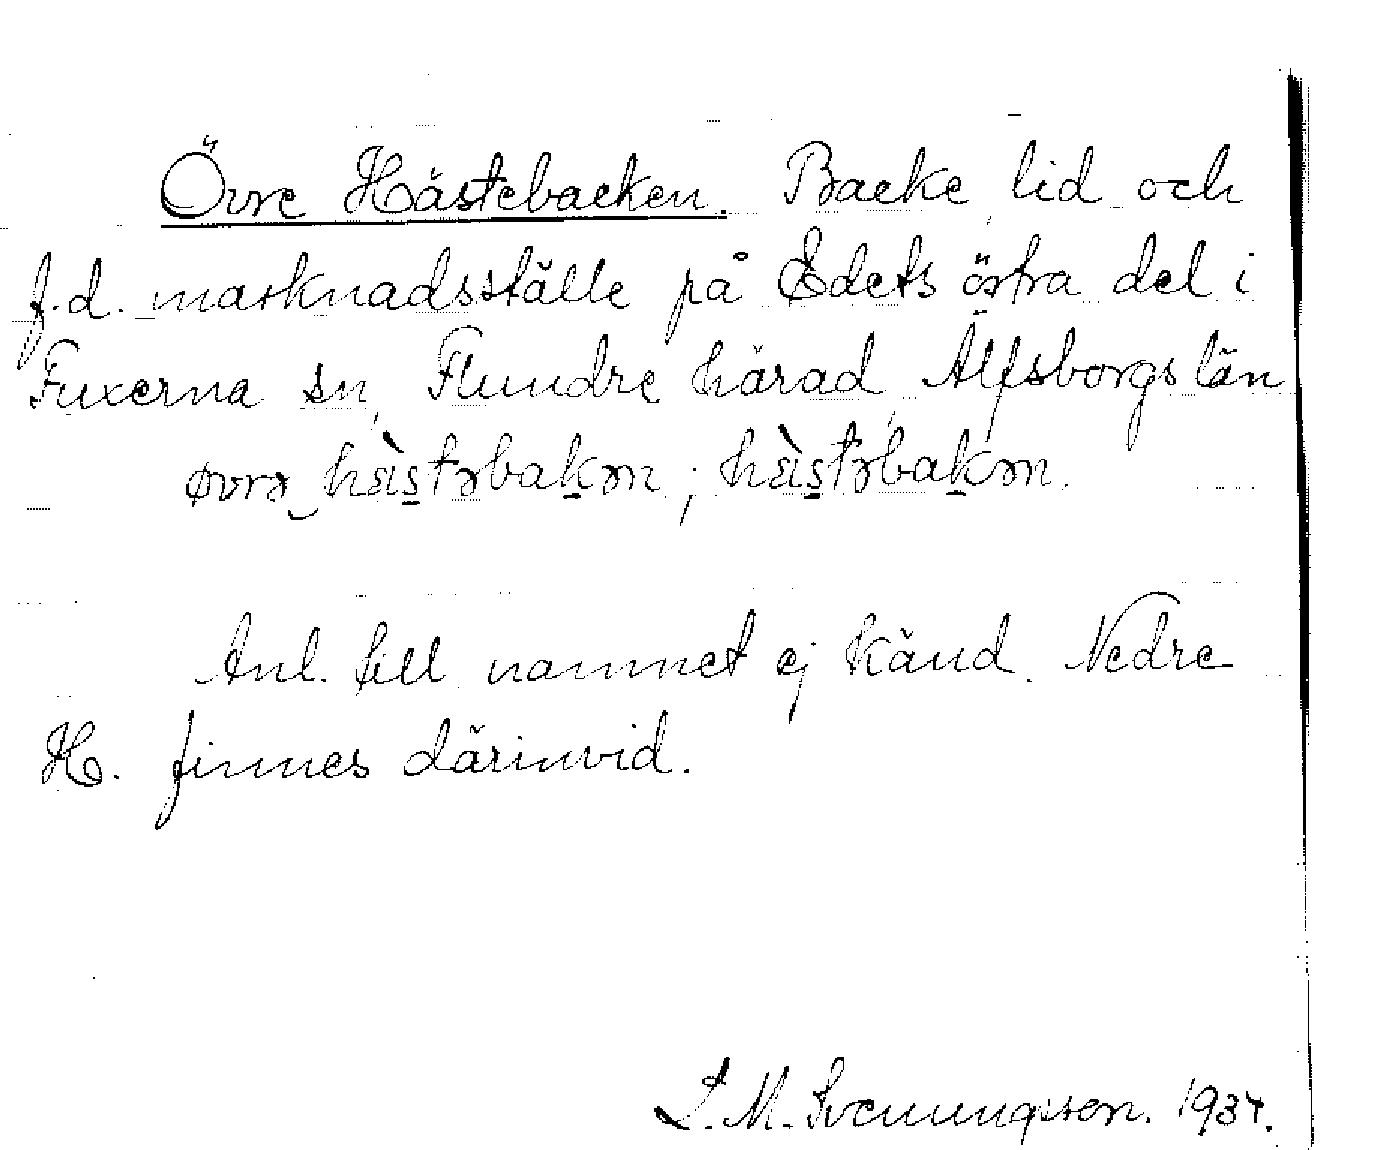 Övre Hästebacken. Backe, lid och
f.d. marknadsställe på Edets östra del i
Fuxerna sn, Flundre härad, Älfsborgs län
øvrə hὰs̲təbak̲ən; hὰs̲təbak̲ən.
Anl. till namnet ej känd. Nedre
H. finnes därinvid.
L. M. Svenungsson. 1934.